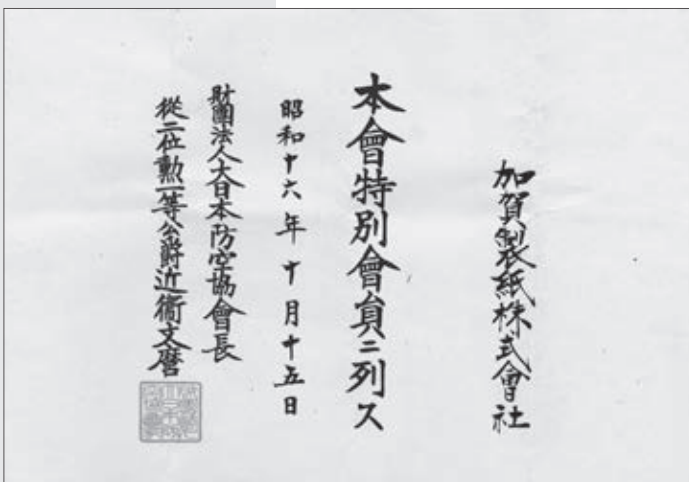 加賀製紙株式會社
本會特別會員ニ列ス
昭和十六年十月十五日
財團法人大日本防空協會長
從二位勲一等公爵近衛文麿